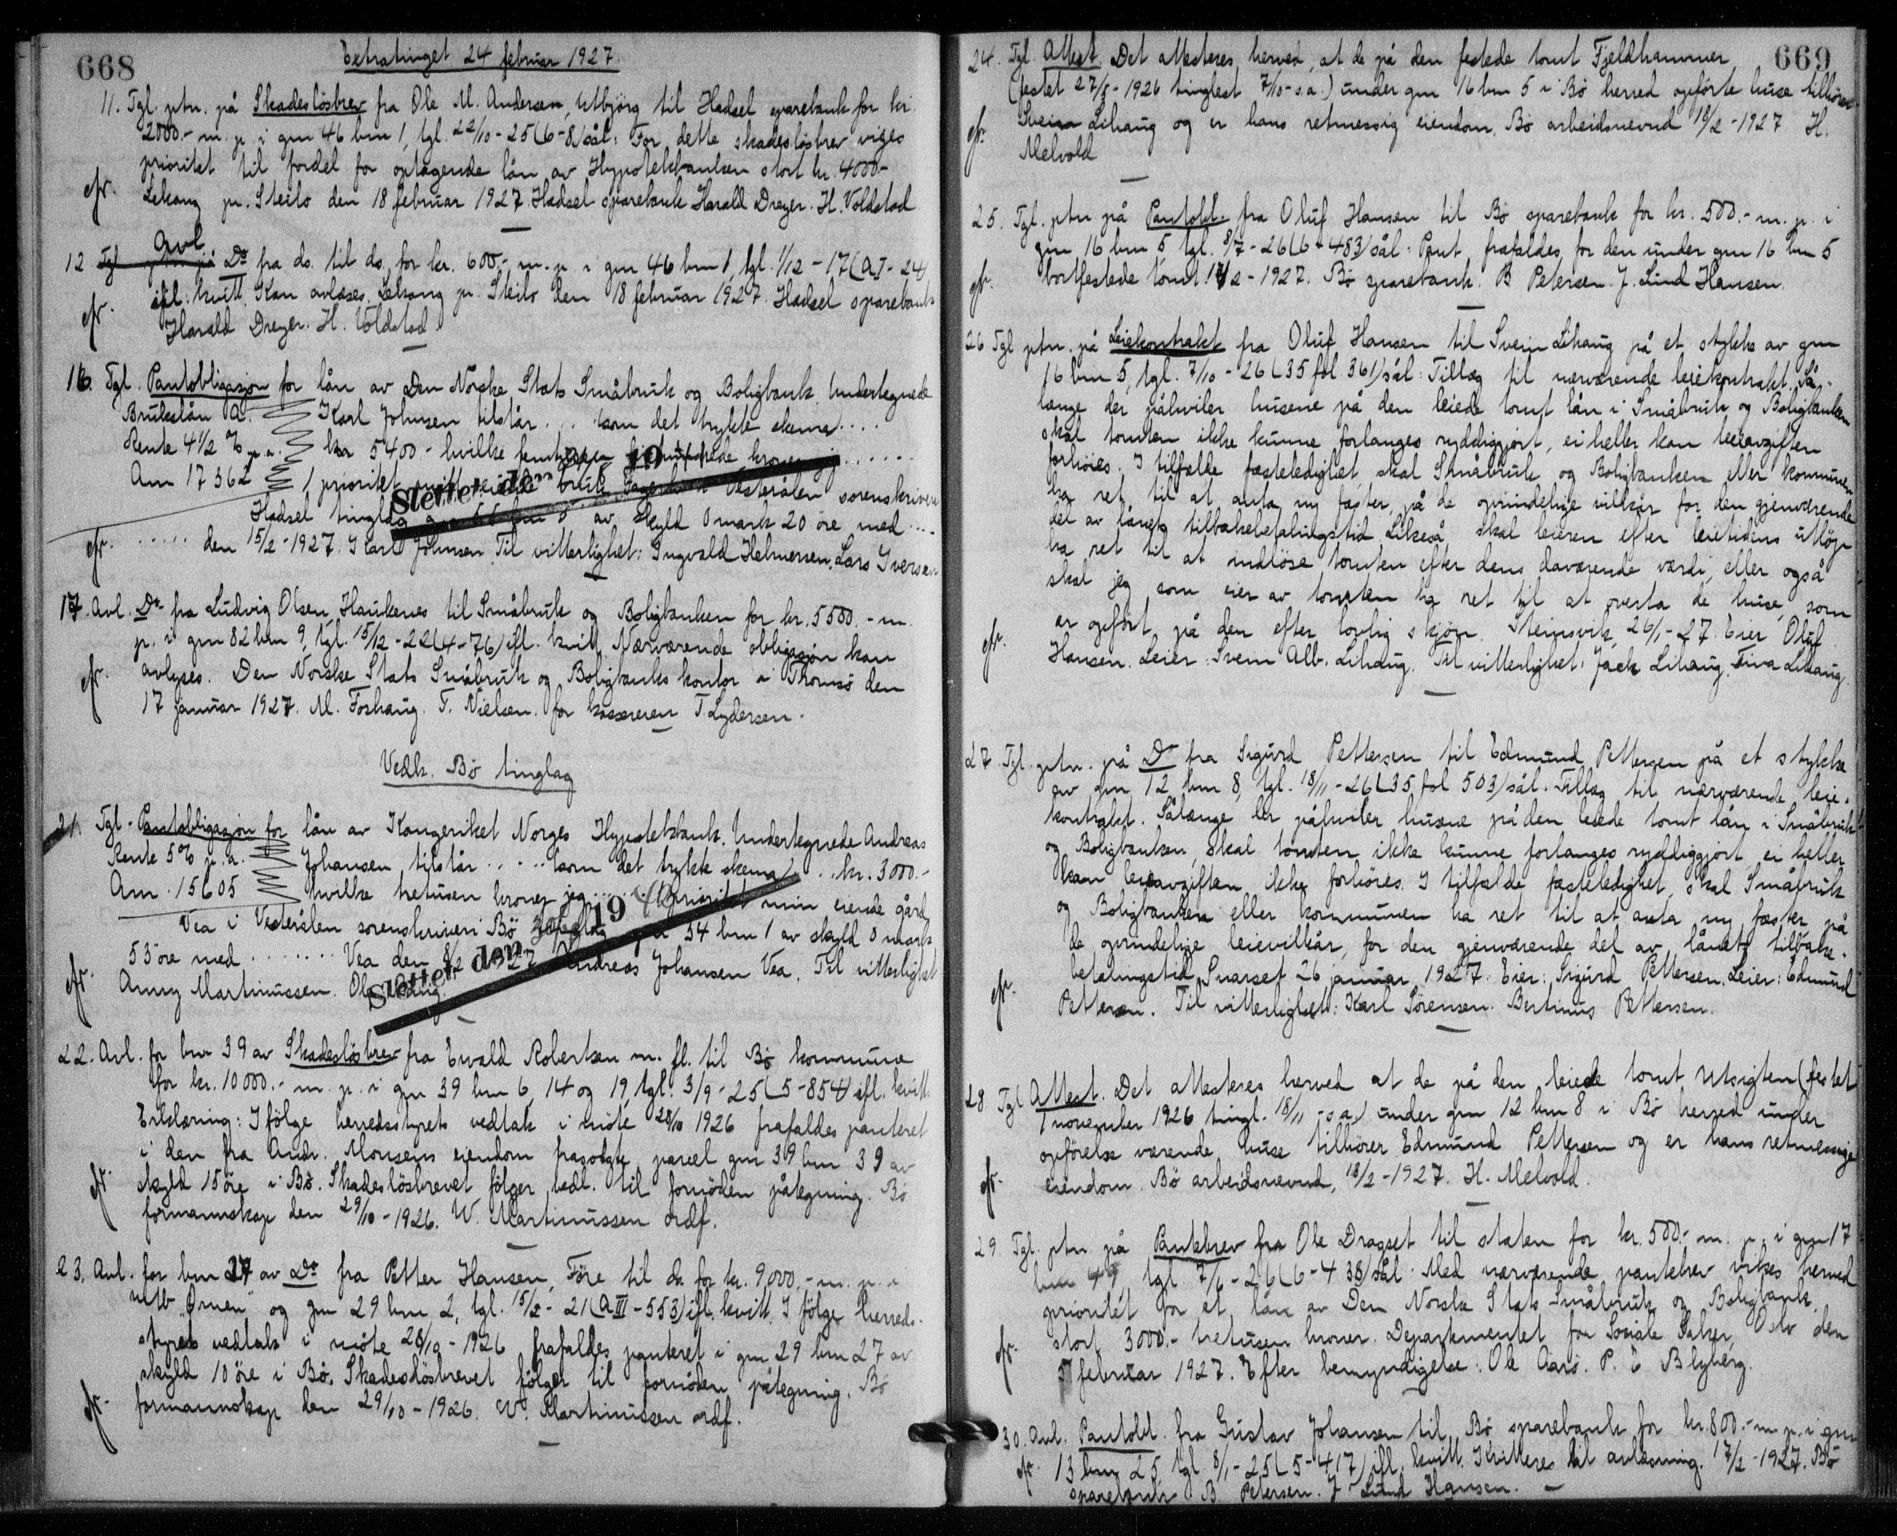 668
Extratinget 24 februar 1927.
11. Tgl. ptn. på Skadeslösbrev fra Ole M. Andersen, Utbjörg til Hadsel sparebank for kr.
2000.- m. p. i gnr 46 bnr 1, tgl. 22/10 - 25 (6-8) sål: For dette skadeslösbrev viges
prioritet til fordel for optagende lån av Hypotekbanken stort kr. 4000.-
Lekang pr. Steilo den 18 februar 1927. Hadsel sparebank Harald Dreyer. H. Voldstad
12 Avl. Do fra ds. til ds. for kr. 600.- m. p. i gnr 46 bnr 1, tgl. 1/12 - 17 (A I - 24)
ifl. kvitt. Kan avlæses. Lekang pr. Steilo den 18 februar 1927. Hadsel sparebank
Harald Dreyer. H. Voldstad
16. Tgl. Pantobligasjon for lån av Den Norske Stats Småbruk og Boligbank. Undertegnede
Brukslån a. Karl Johnsen tilstår . . . (som det trykte skema . . . .
Rente 4 1/2 % p. a. kr 5400 - hvilke femtusen firehundrede kroner jeg . . . . . .
Am 17362 1 prioritet mit bruk Vesterålen sorenskriveri
Hadsel tinglag av skyld 0 mark 20 öre med . . . .
. . . . . den 15/2 - 1927. Karl Johnsen. Til vitterlighet: Ingvald Helmersen. Lars Iversen
Slettet den 19
17. Avl. Do fra Ludvig Olsen, Haukenes til Småbruk og Boligbanken for kr. 5500.- m.
p. i gnr 82 bnr 9, tgl. 15/12 - 22 (4-76) ifl. kvitt. Nærværende obligasjon kan
avlyses. Den Norske Stats Småbruk og Boligbanks kontor i Tromsö den
17 januar 1927. M. Foshaug. F. Nielsen. for kassereren T Lydersen.
Vedk. Bö tinglag
21. Tgl. Pantobligasjon for lån av Kongeriket Norges Hypotekbank. Undertegnede Andreas
Rente 5% p. a. Johansen tilstår . . . . . (som det trykte skema) . . kr. 3000.-
Am. 15605 hvilke tretusen kroner jeg . . . . prioritet min eiende gård
Vea i Vesterålen sorenskriveri Bö tinglag gnr 34 bnr 1 av skyld 0 mark
53 öre med . . . . . . . . . Vea den 8/2 1927 Andreas Johansen Vea. Til vitterlighet
Anny Martinussen. Ole
Slettet den 19
22. Avl. for bnr 39 av Skadeslösbrev fra Ewald Robertsen m. fl. til Bö kommune
for kr. 10000.- m. p. i gnr 39 bnr 6, 14 og 19, tgl. 3/9 - 25 (5-854) ifl. kvitt.
Erklæring: I fölge herredsstyrets vedtak i möte 28/10 1926 frafaldes panteret
i den fra Andr. Monsens eiendom frasolgte parcel gnr 39 bnr 39 av
skyld 15 öre i Bö. Skadeslösbrevet fölger vedl. til fornöden påtegning. Bö
formannskap den 29/10 - 1926. W. Martinussen ordf.
23. Avl. for bnr 27 av Do fra Petter Hansen, Före til ds. for kr. 9,000.- m. p. i
mtb "Örnen" og gnr 29 bnr 2, tgl. 15/2 - 21 (A III - 553) ifl. kvitt. I fölge herreds-
styrets vedtak i möte 28/10 - 1926 frafaldes panteret i gnr 29 bnr 27 av
skyld 10 öre i Bö. Skadeslösbrevet fölger til fornöden påtegning. Bö
formannskap den 29/10 - 1926. W. Martinussen ordf.
669
24. Tgl. Attest. Det attesteres herved, at de på den festede tomt Fjeldhammer
(festet 27/5 - 1926 tinglest 7/10 - s. a.) under gnr 16 bnr 5 i Bö herred opförte huse tilhörer
Svein Lihaug og er hans retmessig eiendom. Bö arbeidsnevnd 18/2 - 1927 H.
Melvold
25. Tgl. ptn på Pantobl. fra Oluf Hansen til Bö sparebank for kr. 500.- m. p. i
gnr 16 bnr 5, tgl. 8/7 - 26 (6-483) sål: Pant frafaldes for den under gnr 16 bnr 5
bortfestede tomt. 2 - 1927. Bö sparebank. B Petersen. J. Lund Hansen.
26 Tgl ptn. på Leiekontrakt fra Oluf Hansen til Svein Lihaug på et stykke av gnr
16 bnr 5, tgl. 7/10 - 26 (35 fol 361) sål: Tillæg til nærværende leiekontrakt. Så-
længe der påhviler husene på den leiede tomt lån i Småbruk og Boligbanken
skal tomten ikke kunne forlanges ryddiggjort, ei heller kan leieavgiften
forhöies. I tilfælde fæsteledighet, skal Småbruk og Boligbanken eller kommunen
ha ret til at anta ny fæster på de oprindelige vilkår for den gjenværende
del av lånets tilbakebetalingstid. Likeså skal leieren efter leietidens utlöp
ha ret til at indlöse tomten efter dens daværende værdi, eller også
skal jeg som eier av tomten ha ret til at overta de huse, som
er opfört på den efter lovlig skjön. Steinsvik, 26/1 - 27. Eier Oluf
Hansen. Leier: Svein Alb. Lihaug. Til vitterlighet: Jack Lihaug. Tina Lihaug.
27. Tgl. ptn. på Do fra Sigurd Pettersen til Edmund Pettersen på et stykke
av gnr 12 bnr 8, tgl. 18/11 - 26 (35 fol 503) sål. Tillæg til nærværende leie-
kontrakt. Sålænge der påhviler husene på den leiede tomt lån i Småbruk
og Boligbanken, skal tomten ikke kunne forlanges ryddiggjort ei heller
kan leieavgiften ikke forhöies. I tilfælde fæsteledighet, skal Småbruk
og Boligbanken eller kommunen ha ret til at anta ny fæster på
de oprindelige leievilkår, for den gjenværende del av lånets tilbake-
betalingstid. Svarset 26 januar 1927. Eier: Sigurd Pettersen. Leier: Edmund
Pettersen. Til vitterlighet: Karl Sörensen. Bertinus Pettersen.
28. Tgl Attest. Det attesteres herved at de på den leiede tomt Utsigten (festet
1 november 1926 tingl. 18/11 - s. a.) under gnr 12 bnr 8 i Bö herred under
opförelse værende huse tilhörer Edmund Pettersen og er hans retmessige
eiendom. Bö arbeidsnevnd, 18/2 - 1927. H. Melvold.
29. Tgl. ptn. på Pantebrev fra Ole Dragset til staten for kr. 500.- m. p. i gnr 17
bnr 49, tgl. 7/6 - 26 (6-438) sål. Med nærværende pantebrev vikes herved
prioritet for et lån av Den Norske Stats Småbruk og Boligbank,
stort 3000.- tretusen kroner. Departementet for Sosiale Saker, Oslo den
februar 1927. Efter bemyndigelse: Ole Aarö. P. E Blyberg.
30. Avl. Pantobl. fra Gustav Johansen til Bö sparebank for kr. 800.- m p. i gnr
13 bnr 25, tgl. 8/1 - 25 (5-417) ifl. kvitt. Kvitteres til avlæsning. 17/2 - 1927. Bö
sparebank B. Petersen. J. Lund Hansen.